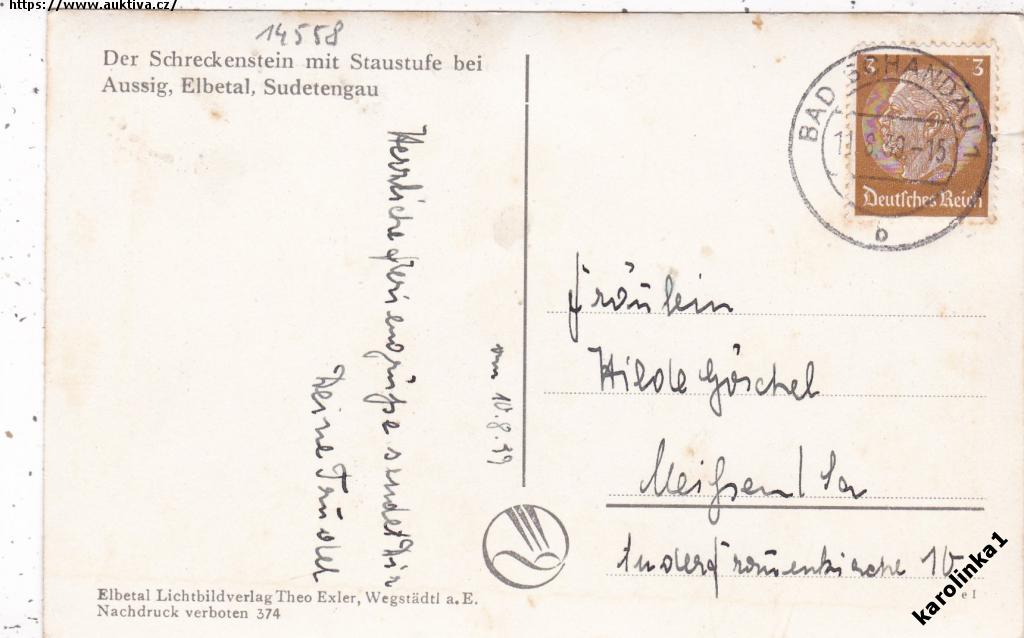 https://www.auktiva.cz/
14558
Der Schreckenstein mit Staustufe bei
Aussig, Elbetal, Sudetengau
Herrliche Feriengrüße sendet Dir
Deine Trudel
vom 10.8.39
BAD SCHANDAU 1
11.8.39-15
b
3 3
Deutsches Reich
Fräulein
Hilde Göschel
Meißen/Sa
An der Frauenkirche 10
Elbetal Lichtbildverlag Theo Exler, Wegstädtl a. E.
Nachdruck verboten 374
e I
karolinka1